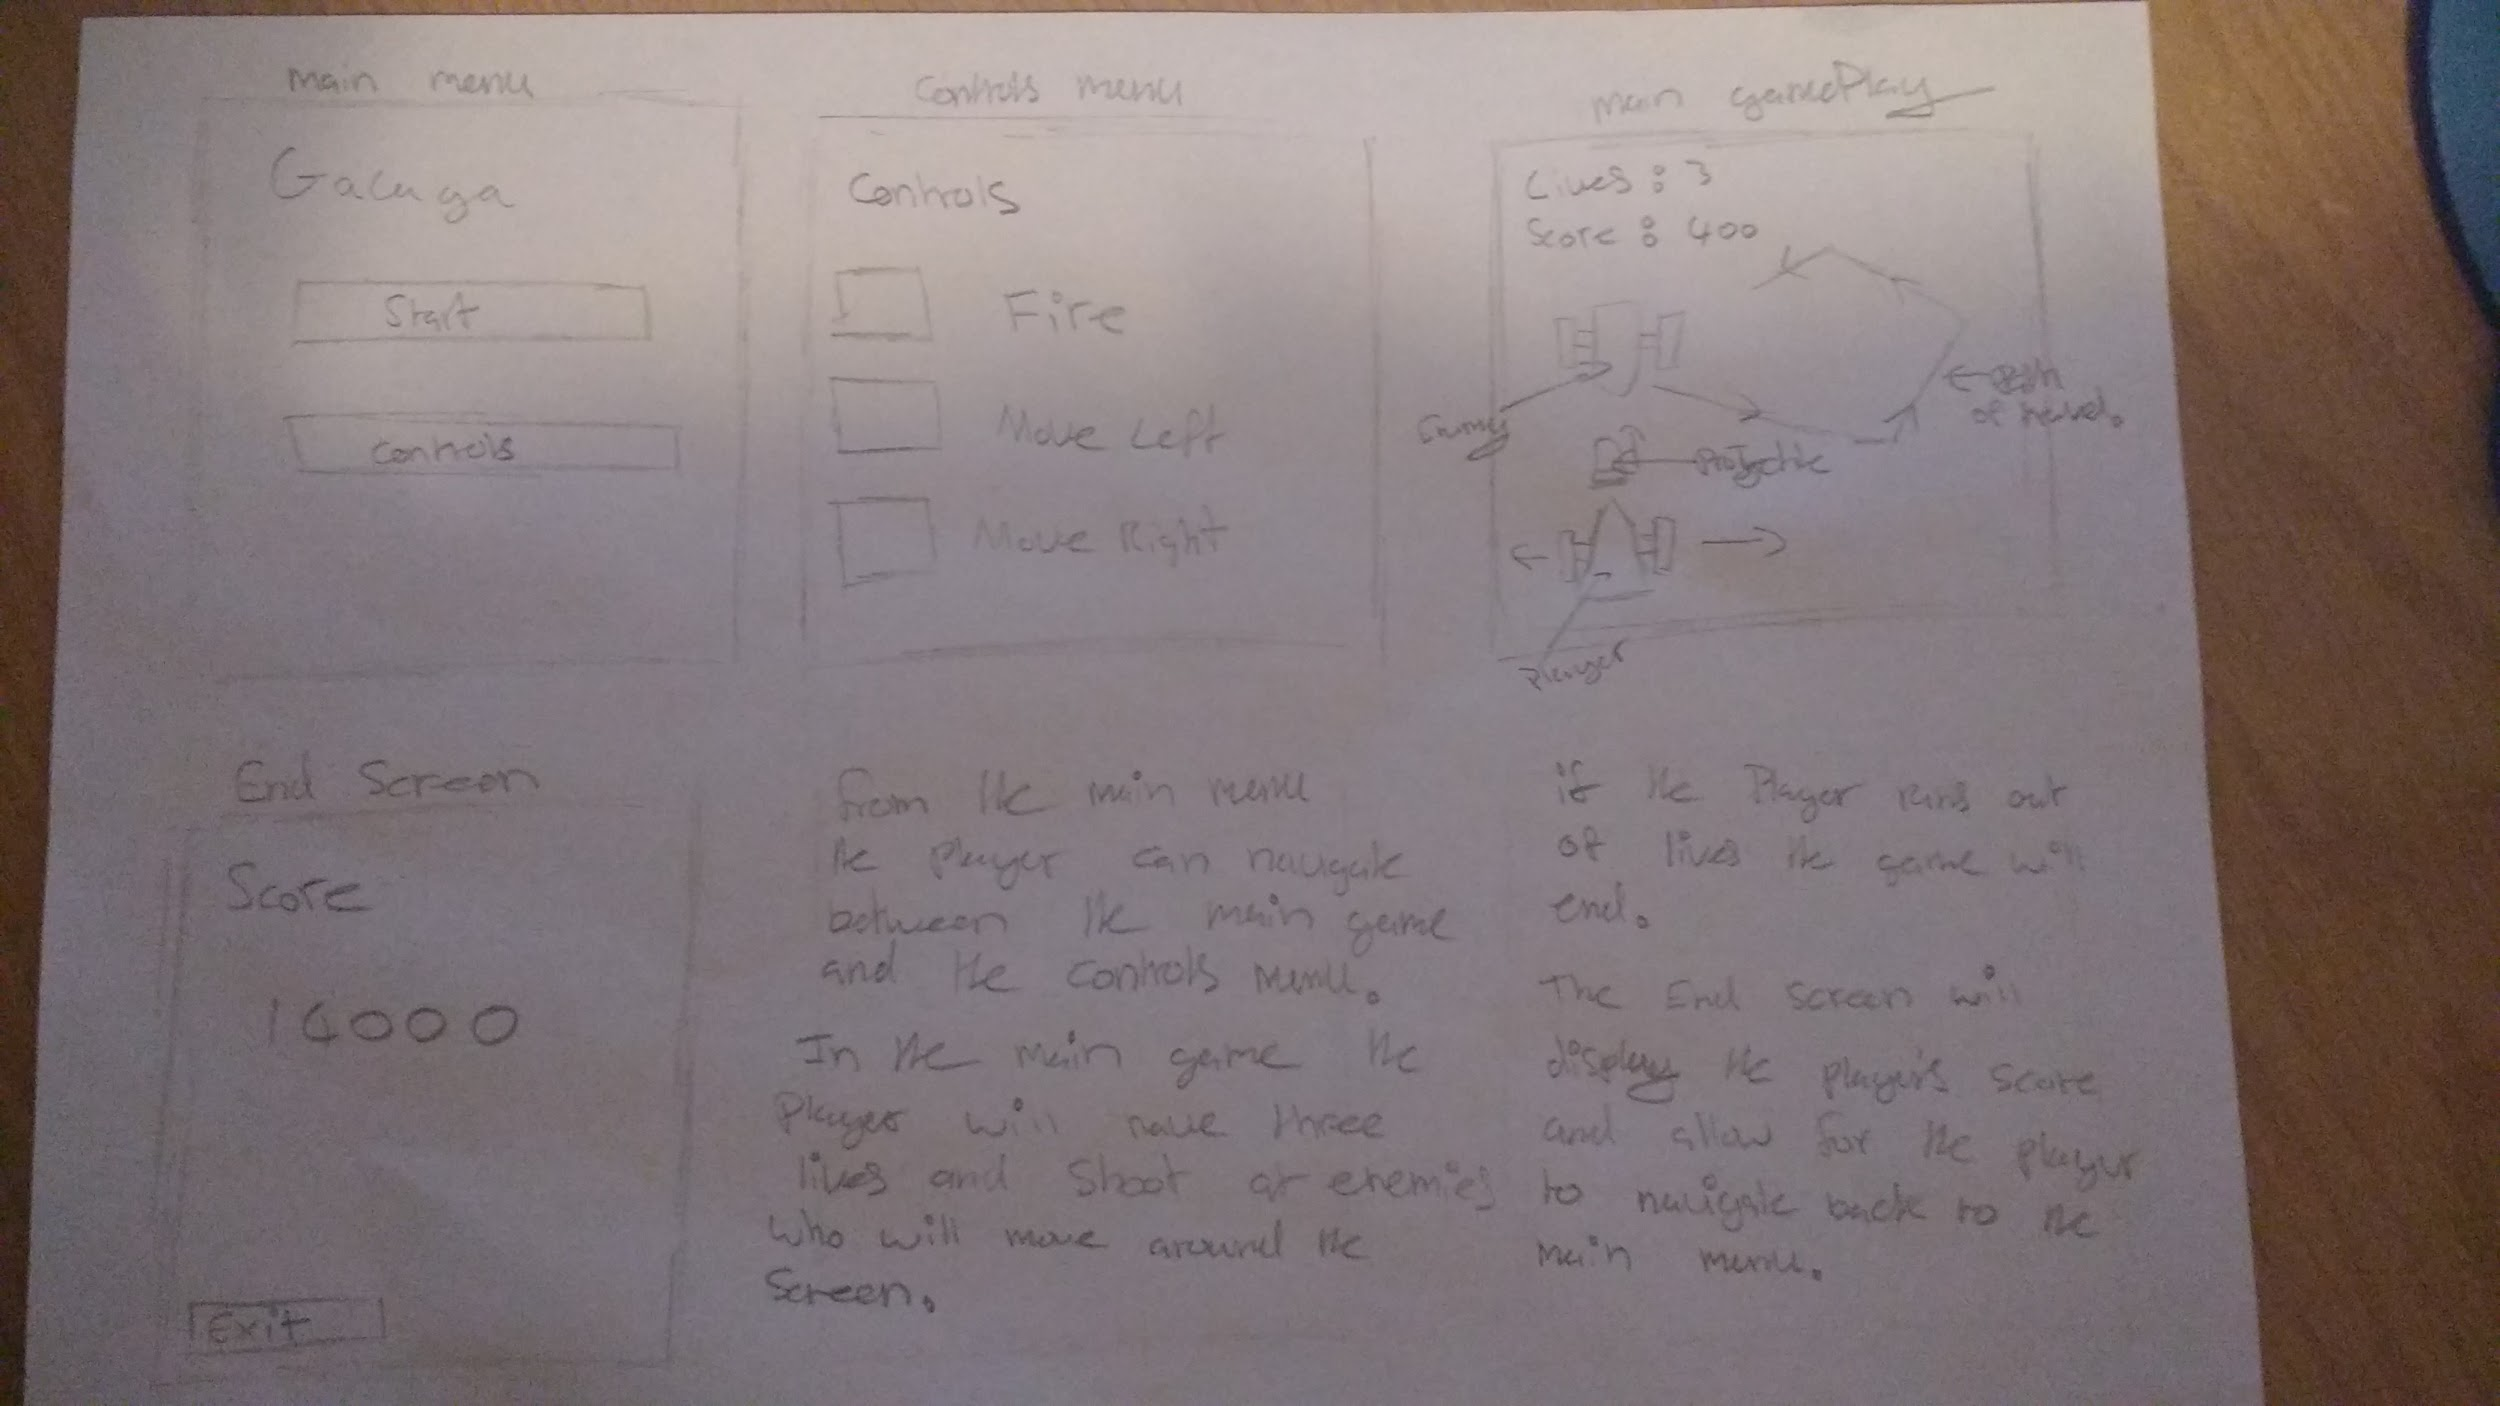 main menu
Galaga
Start
Controls
Controls menu
Controls
Fire
Move Left
Move Right
main gamePlay
Lives : 3
Score : 400
Enemy
Path
of travel.
Projectile
Player
End Screen
Score
14000
Exit
from the main menu
the player can navigate
between the main game
and the controls menu.
In the main game the
Player will have three
lives and shoot at enemies
who will move around the
Screen.
if the Player runs out
of lives the game will
end.
The End Screen will
display the player's score
and allow for the player
to navigate back to the
main menu.